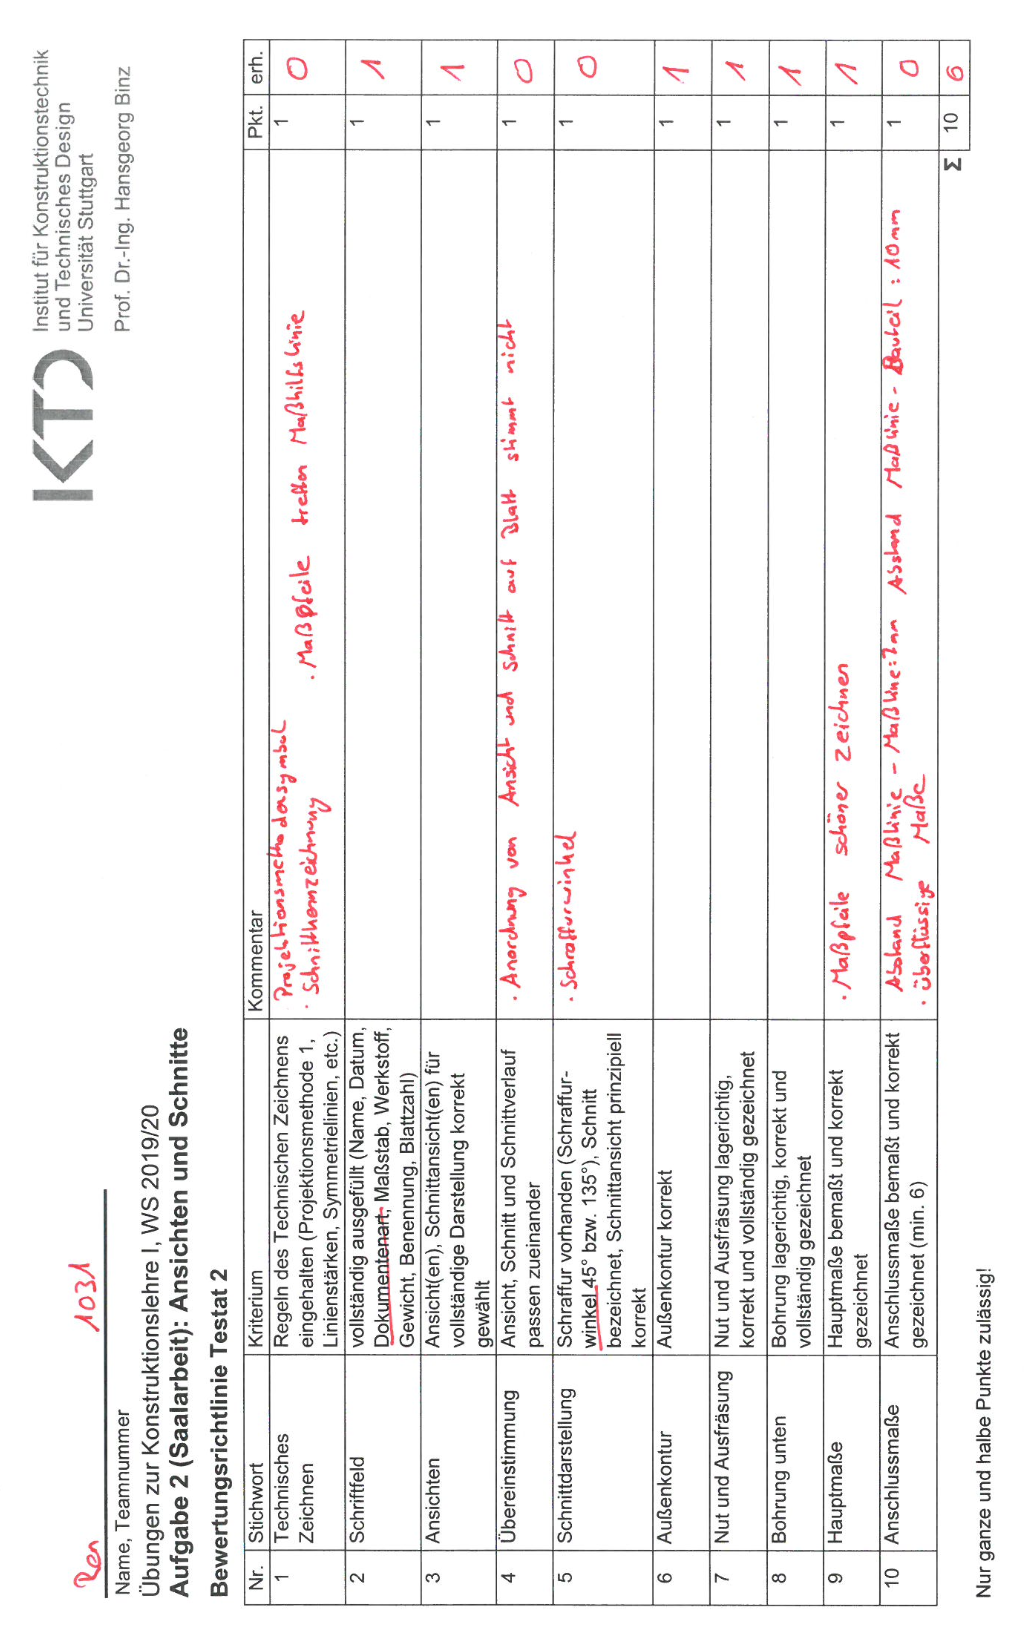 KTD
Institut für Konstruktionstechnik
und Technisches Design
Universität Stuttgart
Prof. Dr.-Ing. Hansgeorg Binz
Ren 1031
Name, Teamnummer
Übungen zur Konstruktionslehre I, WS 2019/20
Aufgabe 2 (Saalarbeit): Ansichten und Schnitte
Bewertungsrichtlinie Testat 2
Nr. Stichwort Kriterium Kommentar Pkt. erh.
1 Technisches Zeichnen
Regeln des Technischen Zeichnens
eingehalten (Projektionsmethode 1,
Linienstärken, Symmetrielinien, etc.)
Projektionsmethodensymbol
· Schnittkennzeichnung · Maßpfeile treffen Maßhilfslinie
1 0
2 Schriftfeld
vollständig ausgefüllt (Name, Datum,
Dokumentenart, Maßstab, Werkstoff,
Gewicht, Benennung, Blattzahl)
1 1
3 Ansichten
Ansicht(en), Schnittansicht(en) für
vollständige Darstellung korrekt
gewählt
1 1
4 Übereinstimmung
Ansicht, Schnitt und Schnittverlauf
passen zueinander
· Anordnung von Ansicht und Schnitt auf Blatt stimmt nicht
1 0
5 Schnittdarstellung
Schraffur vorhanden (Schraffur-
winkel 45° bzw. 135°), Schnitt
bezeichnet, Schnittansicht prinzipiell
korrekt
· Schraffurwinkel
1 0
6 Außenkontur
Außenkontur korrekt
1 1
7 Nut und Ausfräsung
Nut und Ausfräsung lagerichtig,
korrekt und vollständig gezeichnet
1 1
8 Bohrung unten
Bohrung lagerichtig, korrekt und
vollständig gezeichnet
1 1
9 Hauptmaße
Hauptmaße bemaßt und korrekt
gezeichnet
· Maßpfeile schöner zeichnen
1 1
10 Anschlussmaße
Anschlussmaße bemaßt und korrekt
gezeichnet (min. 6)
Abstand Maßlinie - Maßline: 7mm Abstand Maßlinie - Bauteil : 10mm
· überflüssige Maße
1 0
Σ 10 6
Nur ganze und halbe Punkte zulässig!